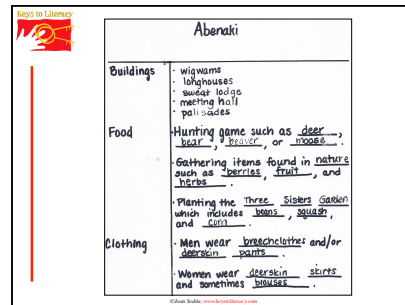 Keys to Literacy
Abenaki
Buildings
· wigwams
· longhouses
· sweat lodge
· meeting hall
· palisades
Food
· Hunting game such as deer,
bear, beaver, or moose.
· Gathering items found in nature
such as berries, fruit, and
herbs.
· Planting the Three Sisters Garden
which includes beans, squash,
and corn.
Clothing
· Men wear breechclothes and/or
deerskin pants.
· Women wear deerskin skirts
and sometimes blouses.
©Joan Sedita, www.keystoliteracy.com